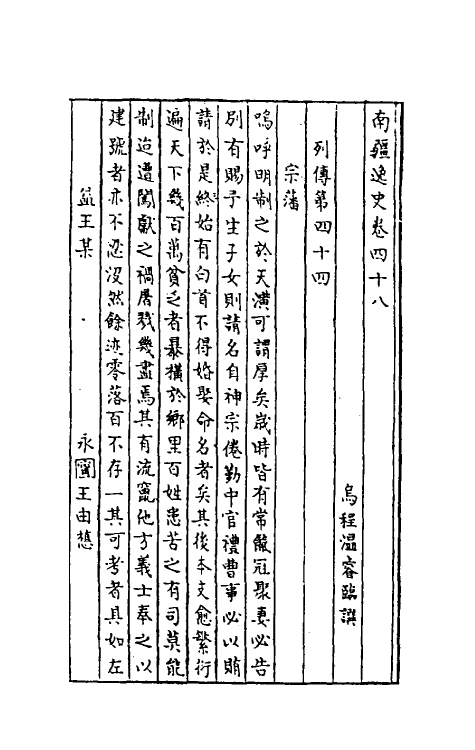 南疆逸史卷四十八
烏程溫睿臨譔
列傳第四十四
宗藩
嗚呼明制之於天潢可謂厚矣歲時皆有常餼冠娶妻必告
別有賜予生子女則請名自神宗倦勤中官禮曹事必以賄
請於是終始有白首不得婚娶命名者矣其後本支愈繁衍
遍天下幾百萬貧乏者暴橫於鄉里百姓患苦之有司莫能
制迨遭闖獻之禍屠戮幾盡焉其有流竄他方義士奉之以
建號者亦不泯沒然餘迹零落百不存一其可考者具如左
益王某 永寧王由𣚴